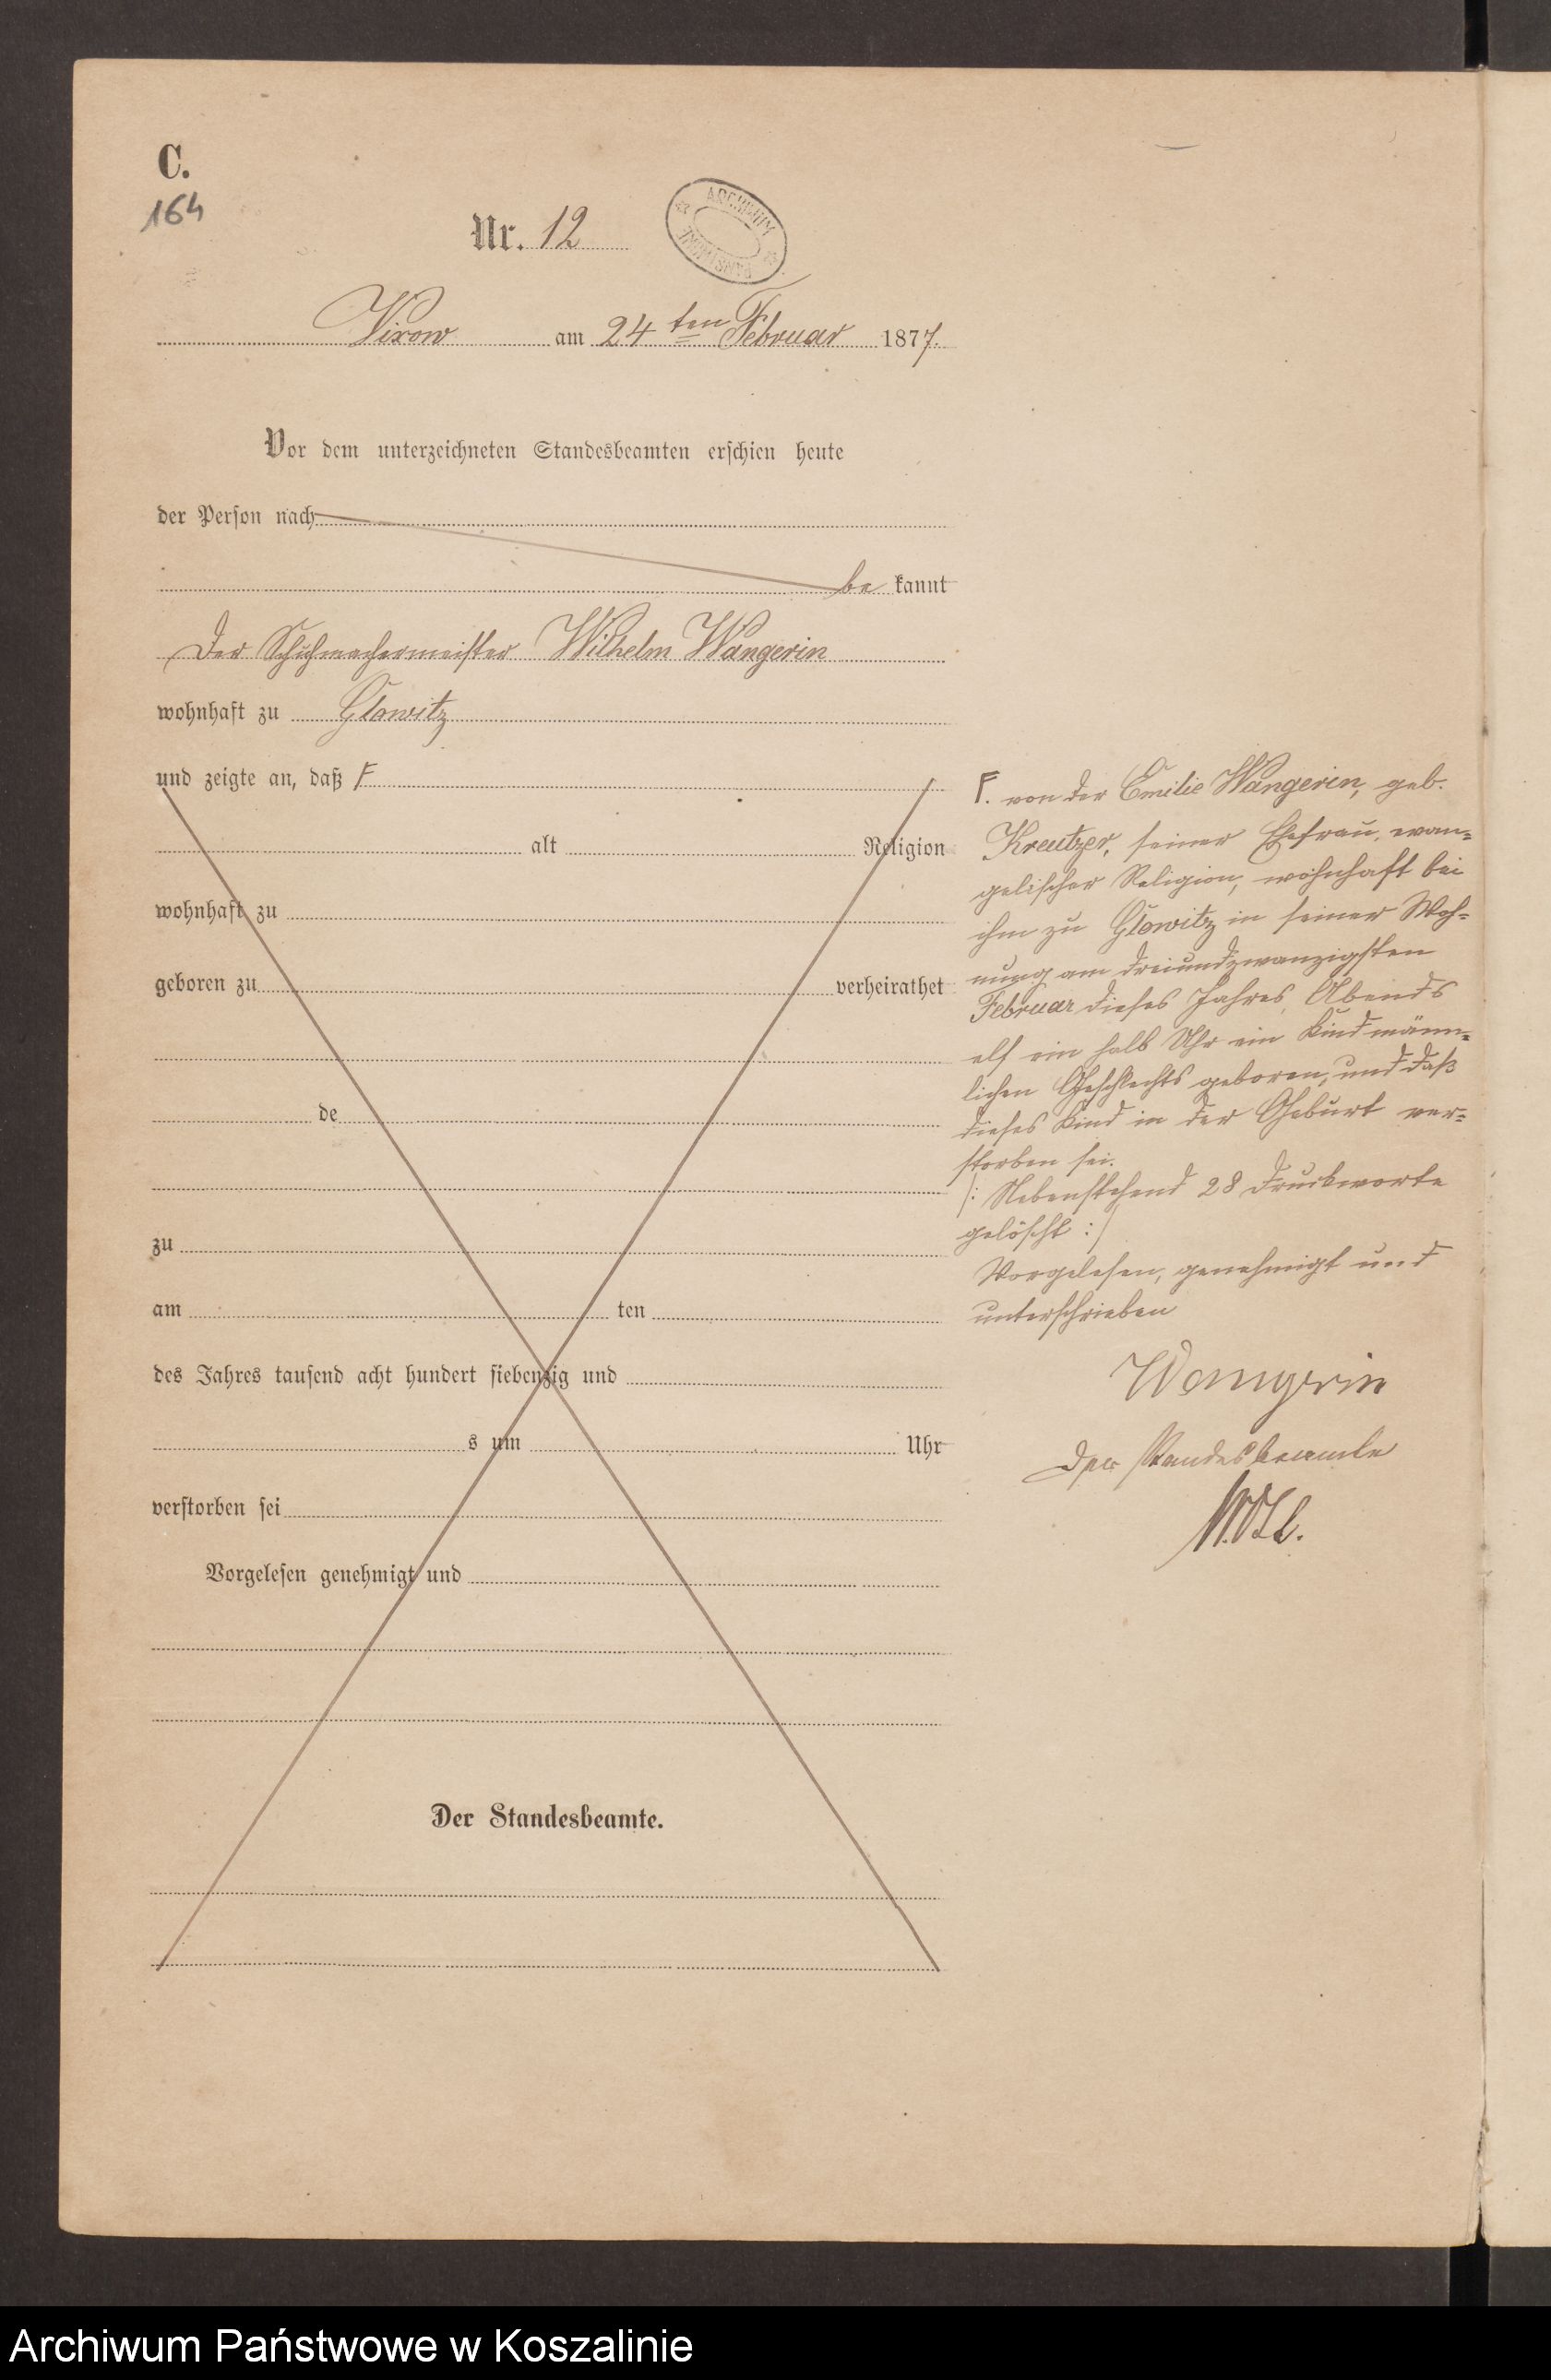 C.
164
Nr. 12
ARCHIWUM
PAŃSTWOWE
Vixow am 24 ten Februar 1877.
Vor dem unterzeichneten Standesbeamten erschien heute
der Person nach
be kannt
Der Schuhmachermeister Wilhelm Wangerin
wohnhaft zu Glowitz
und zeigte an, daß F
alt Religion
wohnhaft zu
geboren zu verheirathet
de
zu
am ten
des Jahres tausend acht hundert siebenzig und
s um Uhr
verstorben sei
Vorgelesen genehmigt und
Der Standesbeamte.
F. von der Emilie Wangerin, geb.
Kreutzer, seiner Ehefrau, evan=
gelischer Religion, wohnhaft bei
ihm zu Glowitz in seiner Woh=
nung am dreiundzwanzigsten
Februar dieses Jahres, Abends
elf ein halb Uhr ein Kind männ=
lichen Geschlechts geboren, und daß
dieses Kind in der Geburt ver=
storben sei.
/: Nebenstehend 28 Druckworte
gelöscht :/
Vorgelesen, genehmigt und
unterschrieben
Wangerin
Der Standesbeamte
Archiwum Państwowe w Koszalinie